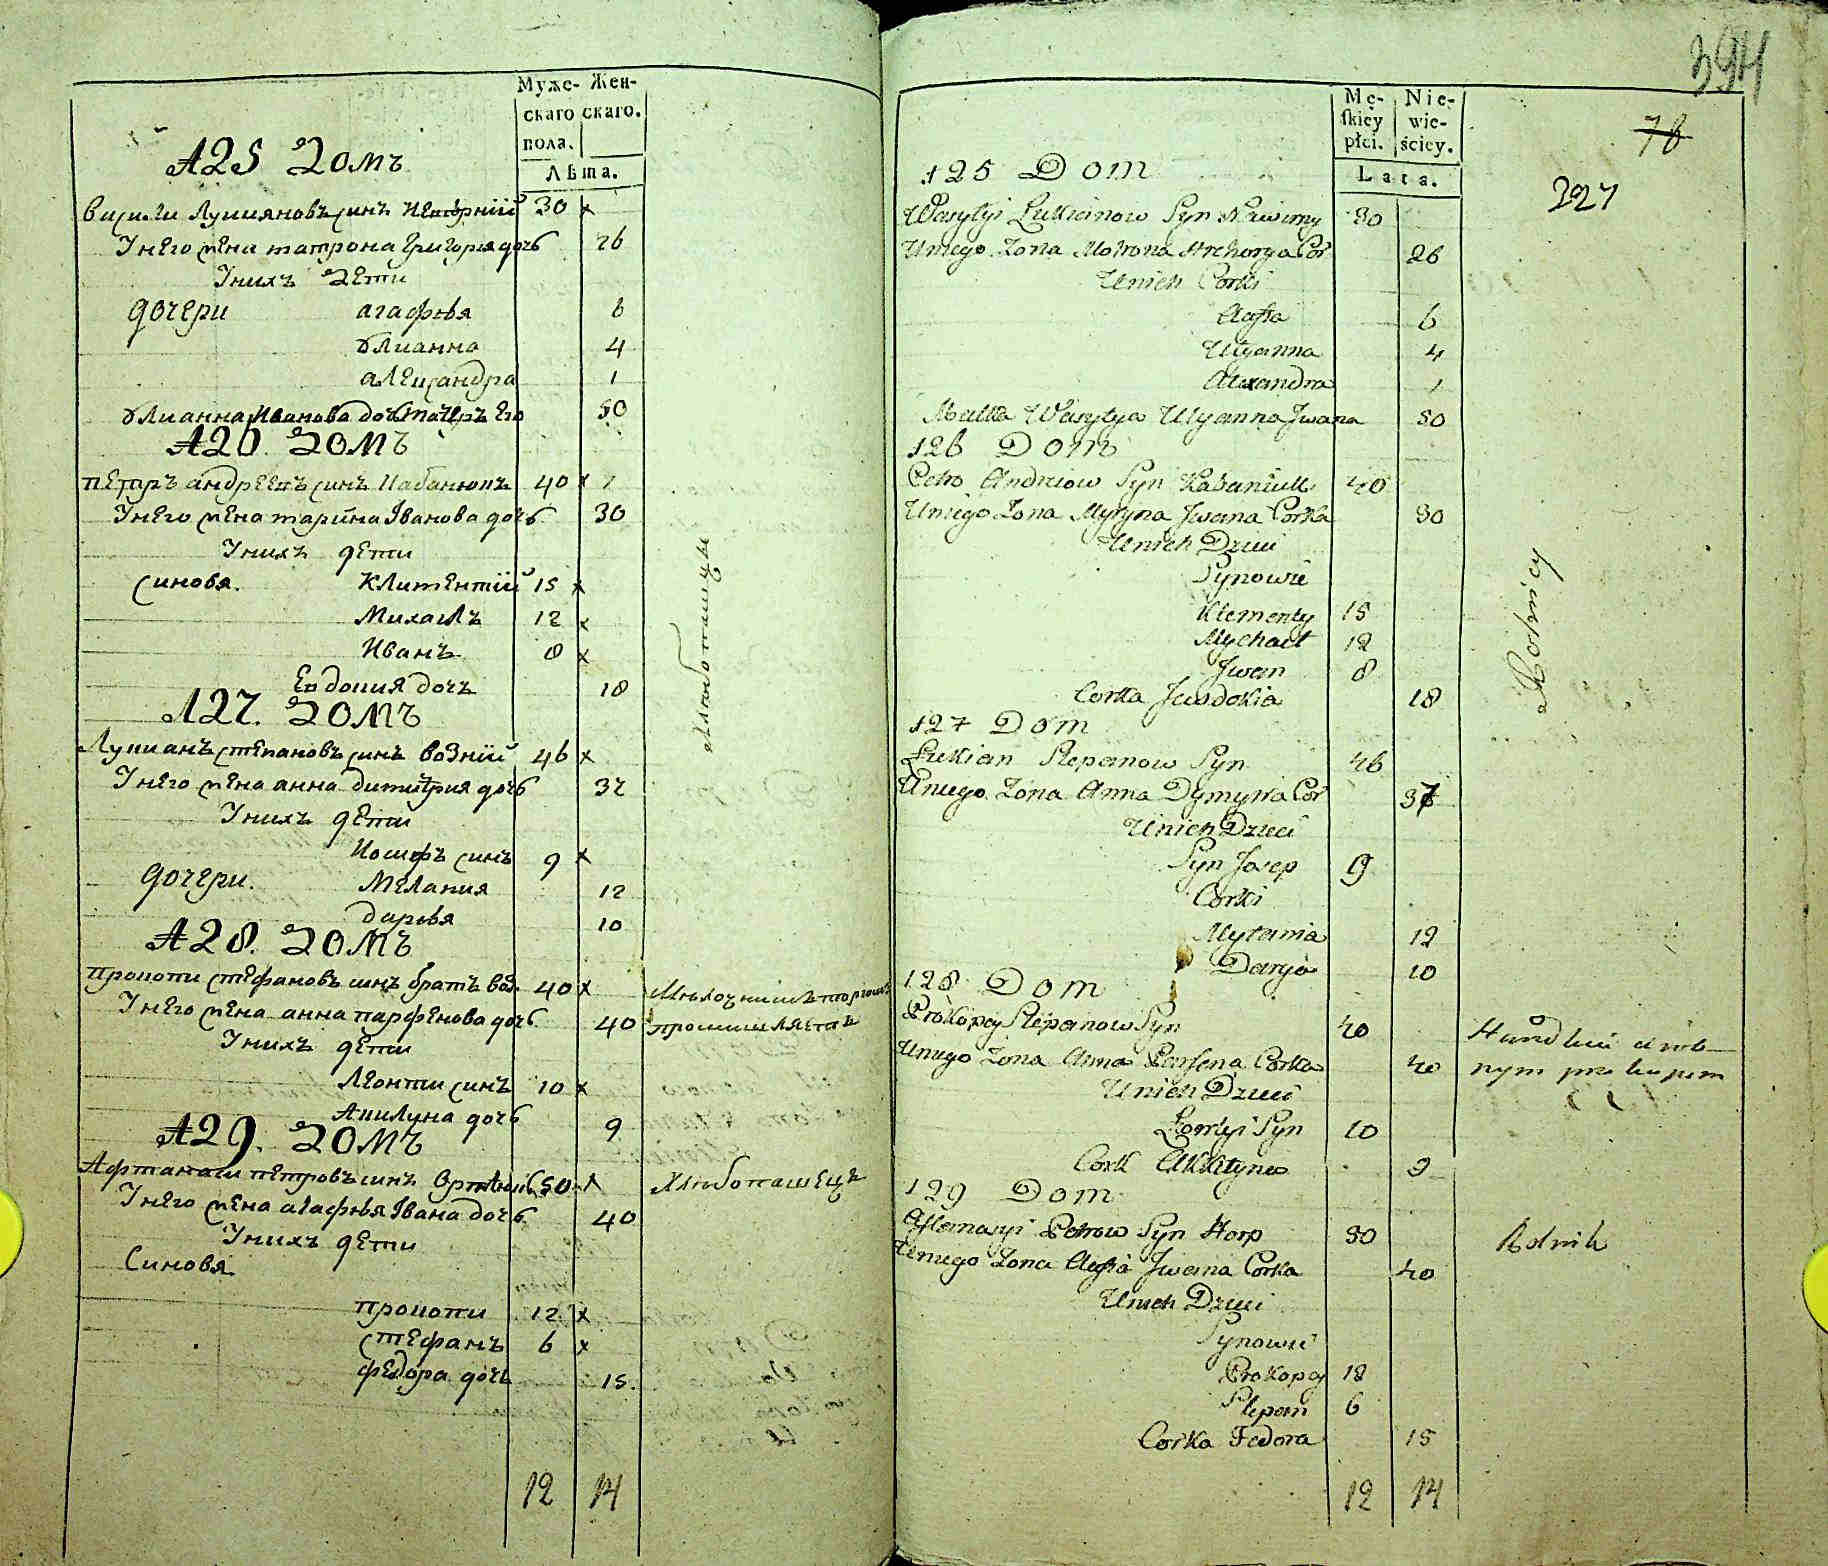 Муже-
скаго
пола.
Жен-
скаго.
Лѣта.
125 Домъ
Василiи Лукияновъ синъ 30 x
Унего жена матрона Григория дочь 26
Унихъ Дети
Дочери агафья 6
Улианна 4
александра 1
Улианна Иванова дочь матерь Его 50
126. Домъ
Петръ андреевъ синъ Кабанюкъ 40 x
Унего жена марина Іванова дочь 30
Унихъ дети
Синовя. Климентiй 15 x
Михаилъ 12 x
Иванъ 8 x
Евдокия дочь 18
127. Домъ
Лукианъ степановъ синъ возний 46 x
Унего жена анна димитрия дочь 37
Унихъ дети
Иосифъ синъ 9 x
Дочери. Мелания 12
дарья 10
128. Домъ
прокопи стефановъ синъ братъ воз. 40 x
Унего жена анна парфенова дочь 40
Унихъ дети
Леонти синъ 10 x
Акилуна дочь 9
129. Домъ
Афтанаси петровъ синъ 50 x
Унего жена агафья Івана дочь 40
Унихъ дети
Синовя
прокопи 12 x
стефанъ 6 x
федора дочь 15.
12 14
Хлѣбопашцы
Мѣлочнимъ торгомъ
промишляетъ
Хлѣбопашецъ
394
78
227
Mę-
skiey
płci.
Nie-
wie-
ściey.
Lata.
125 Dom
Wasylyi Lukianow Syn 30
Uniego Zona Motrona Hrehorya Cor 26
Unich Corki
Aafia 6
Ulyanna 4
Alexandra 1
Matka Wasylya Ulyanna Jwana 50
126 Dom
Petro Andreiow Syn Kabaniuk 40
Uniego Zona Maryna Jwana Corka 30
Unich Dzieci
Synowie
Klementy 15
Mychaił 12
Jwan 8
Corka Jewdokia 18
127 Dom
Lukian Stepanow Syn 46
Uniego Zona Anna Dymytra Cor 37
Unich Dzieci
Syn Josep 9
Corki
Mylania 12
Darya 10
128 Dom
Prokopey Stepanow Syn 40
Uniego Zona Anna Parfena Corka 40
Unich Dzieci
Leontyi Syn 10
Cork Akilyna 9
129 Dom
Aftanasyi Petrow Syn Horp 50
Uniego Zona Aafia Jwana Corka 40
Unich Dzieci
Synowie
Prokopey 12
Stepan 6
Corka Fedora 15
12 14
Rolnicy
Handlem drob-
nym
Rolnik